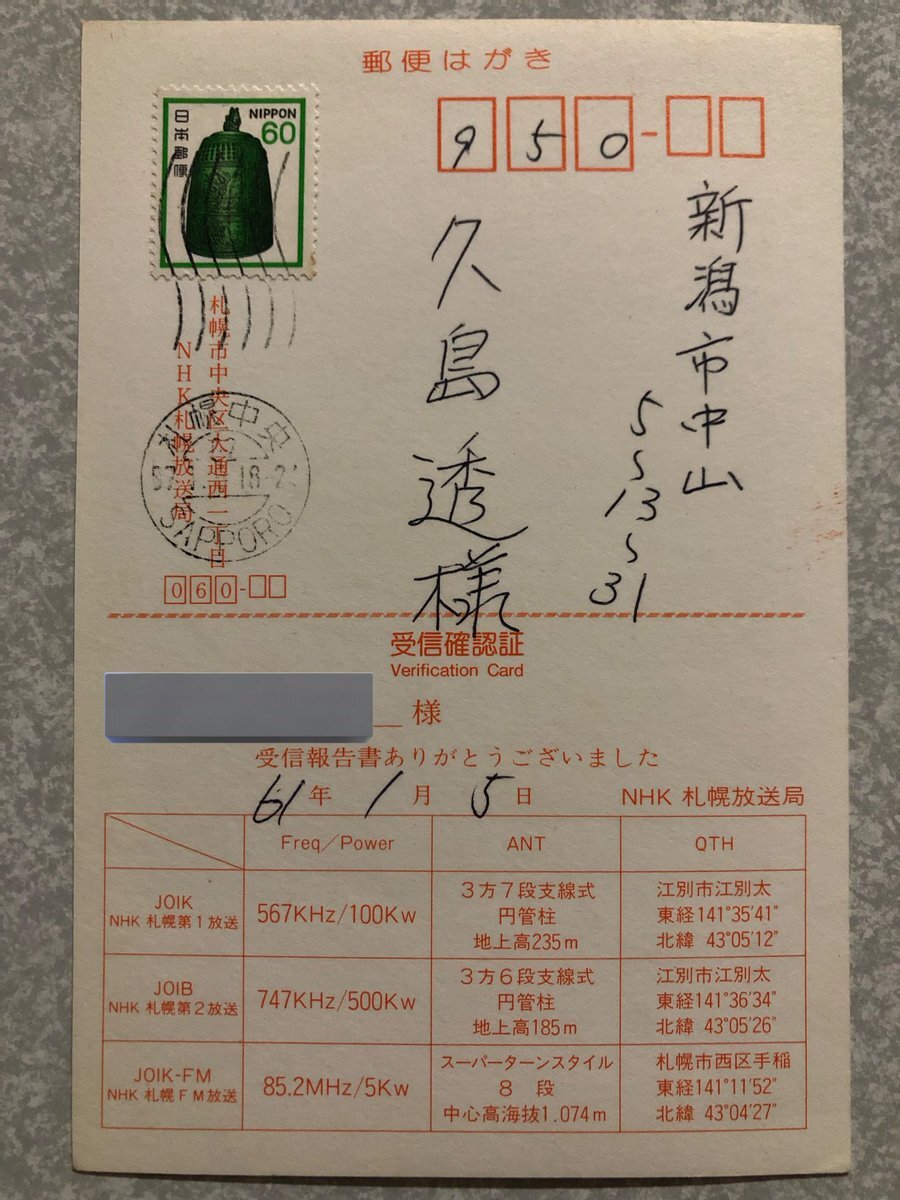 郵便はがき
日本郵便
NIPPON
60
950-
新潟市中山
5~13~31
久島透様
札幌市中央区大通西一丁目
NHK札幌放送局
札幌中央
18-2
SAPPORO
060-
受信確認証
Verification Card
様
受信報告書ありがとうございました
61年 1月 5日 NHK 札幌放送局
Freq/Power ANT QTH
JOIK
NHK 札幌第1放送
567KHz/100Kw
3方7段支線式
円管柱
地上高235m
江別市江別太
東経141°35′41″
北緯 43°05′12″
JOIB
NHK 札幌第2放送
747KHz/500Kw
3方6段支線式
円管柱
地上高185m
江別市江別太
東経141°36′34″
北緯 43°05′26″
JOIK-FM
NHK 札幌FM放送
85.2MHz/5Kw
スーパーターンスタイル
8 段
中心高海抜1.074m
札幌市西区手稲
東経141°11′52″
北緯 43°04′27″